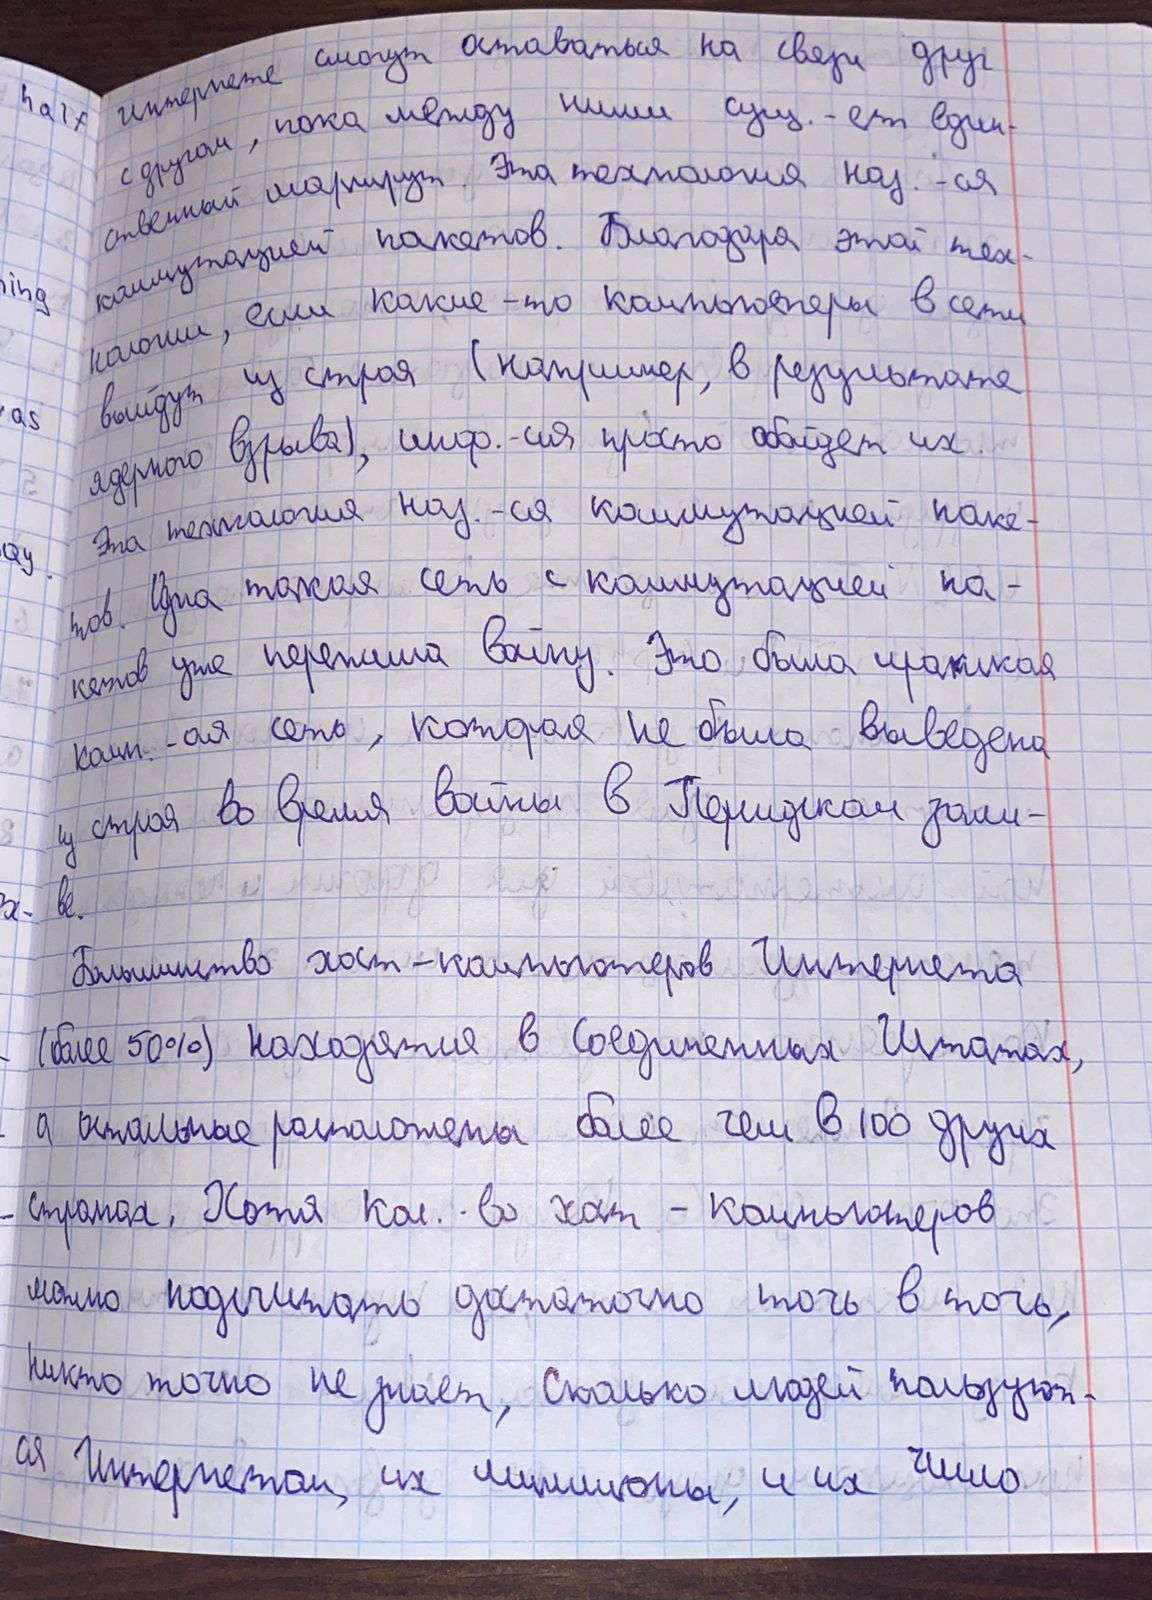 half
ning
as
ay.
интернете смогут оставаться на связи друг
с другом, пока между ними сущ.-ет един-
ственный маршрут. Эта технология наз.-ся
коммутацией пакетов. Благодаря этой тех-
нологии, если какие-то компьютеры в сети
выйдут из строя (например, в результате
ядерного взрыва), инф.-ия просто обойдет их.
Эта технология наз.-ся коммутацией паке-
тов. Одна такая сеть с коммутацией па-
кетов уже пережила войну. Это была иракская
комп.-ая сеть, которая не была выведена
из строя во время войны в Персидском зали-
ве.
Большинство хост-компьютеров Интернета
(более 50%) находятся в Соединенных Штатах,
а остальные расположены более чем в 100 других
странах. Хотя кол.-во хост-компьютеров
можно подсчитать достаточно точь в точь,
никто точно не знает, сколько людей пользуют-
ся Интернетом, их миллионы, и их число